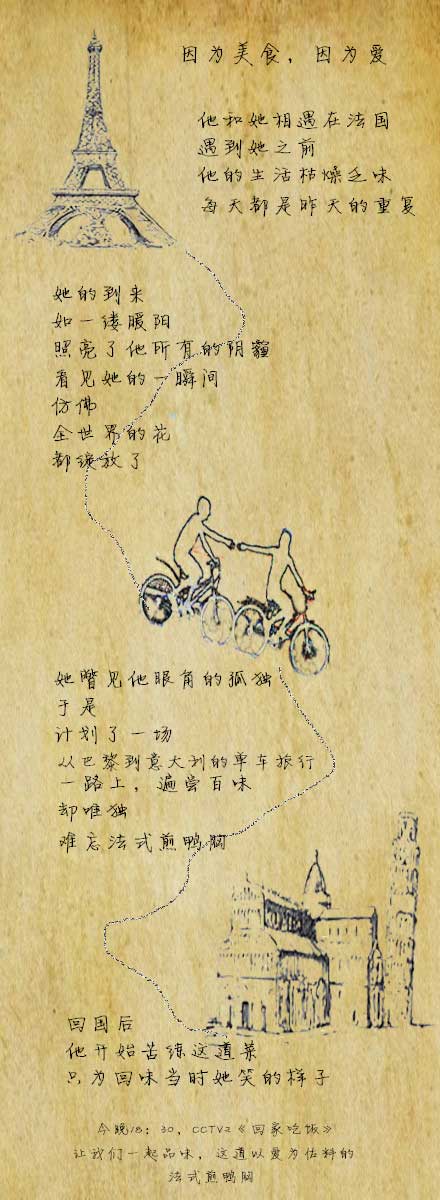 因为美食，因为爱
他和她相遇在法国
遇到她之前
他的生活枯燥乏味
每天都是昨天的重复
她的到来
如一缕暖阳
照亮了他所有的阴霾
看见她的一瞬间
仿佛
全世界的花
都绽放了
她瞥见他眼角的孤独
于是
计划了一场
从巴黎到意大利的单车旅行
一路上，遍尝百味
却唯独
难忘法式煎鸭胸
回国后
他开始苦练这道菜
只为回味当时她笑的样子
今晚18：30，CCTV2《回家吃饭》
让我们一起品味，这道以爱为佐料的
法式煎鸭胸